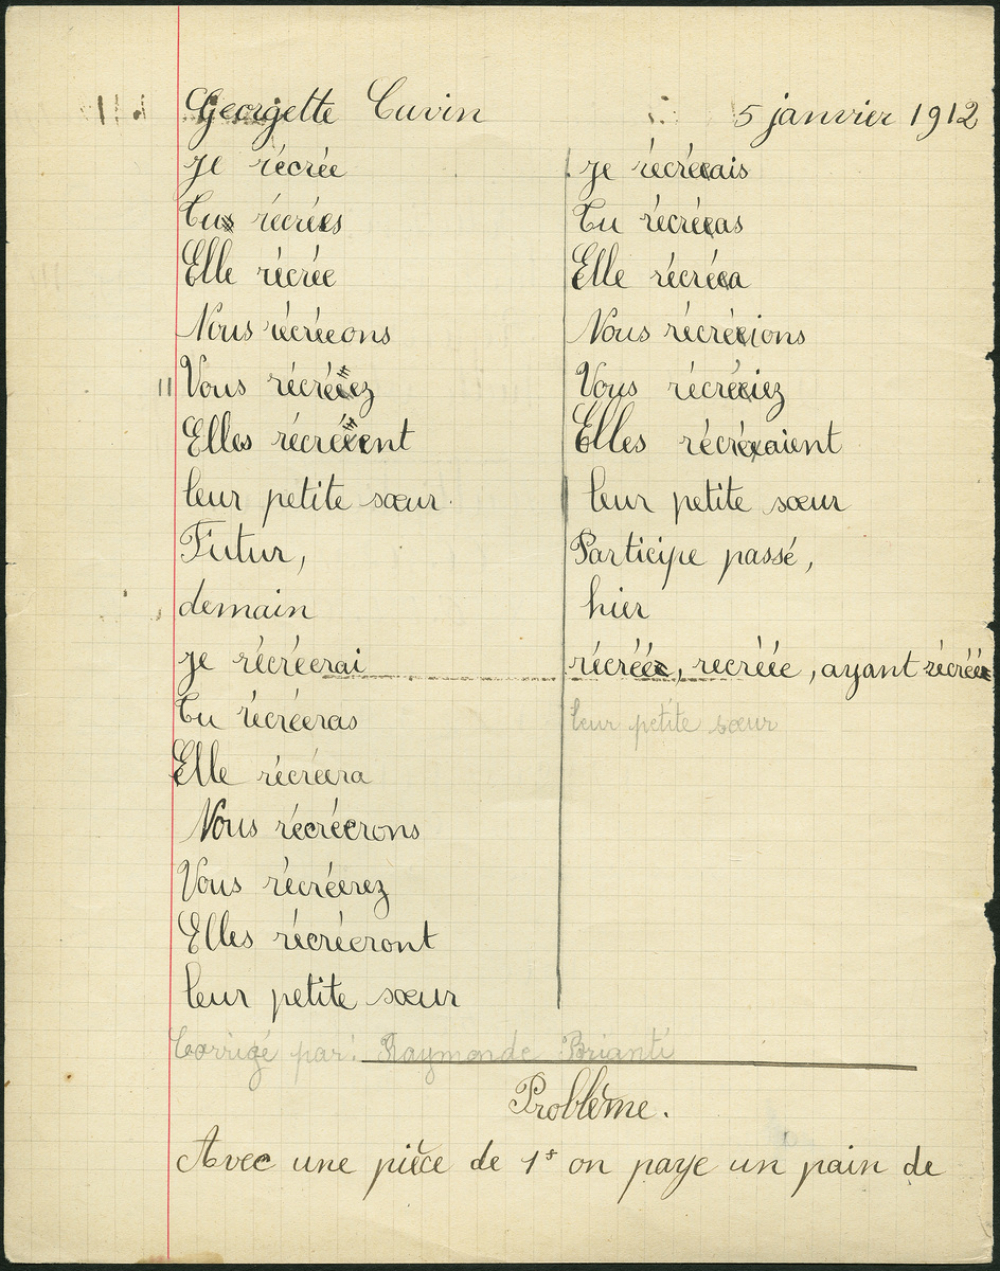 Georgette Cuvin 5 janvier 1912
je récrée
Tu récrées
Elle récrée
Nous récréeons
Vous récréez
Elles récréent
leur petite sœur.
Futur,
demain
je récréerai
Tu récréeras
Elle récréera
Nous récréerons
Vous récréerez
Elles récréeront
leur petite sœur
je récréais
Tu récréas
Elle récréa
Nous récréions
Vous récréiez
Elles récréaient
leur petite sœur
Participe passé,
hier
récréé, recréée, ayant récréé
leur petite sœur
Corrigé par: Raymonde Brianti
Problème.
Avec une pièce de 1f on paye un pain de